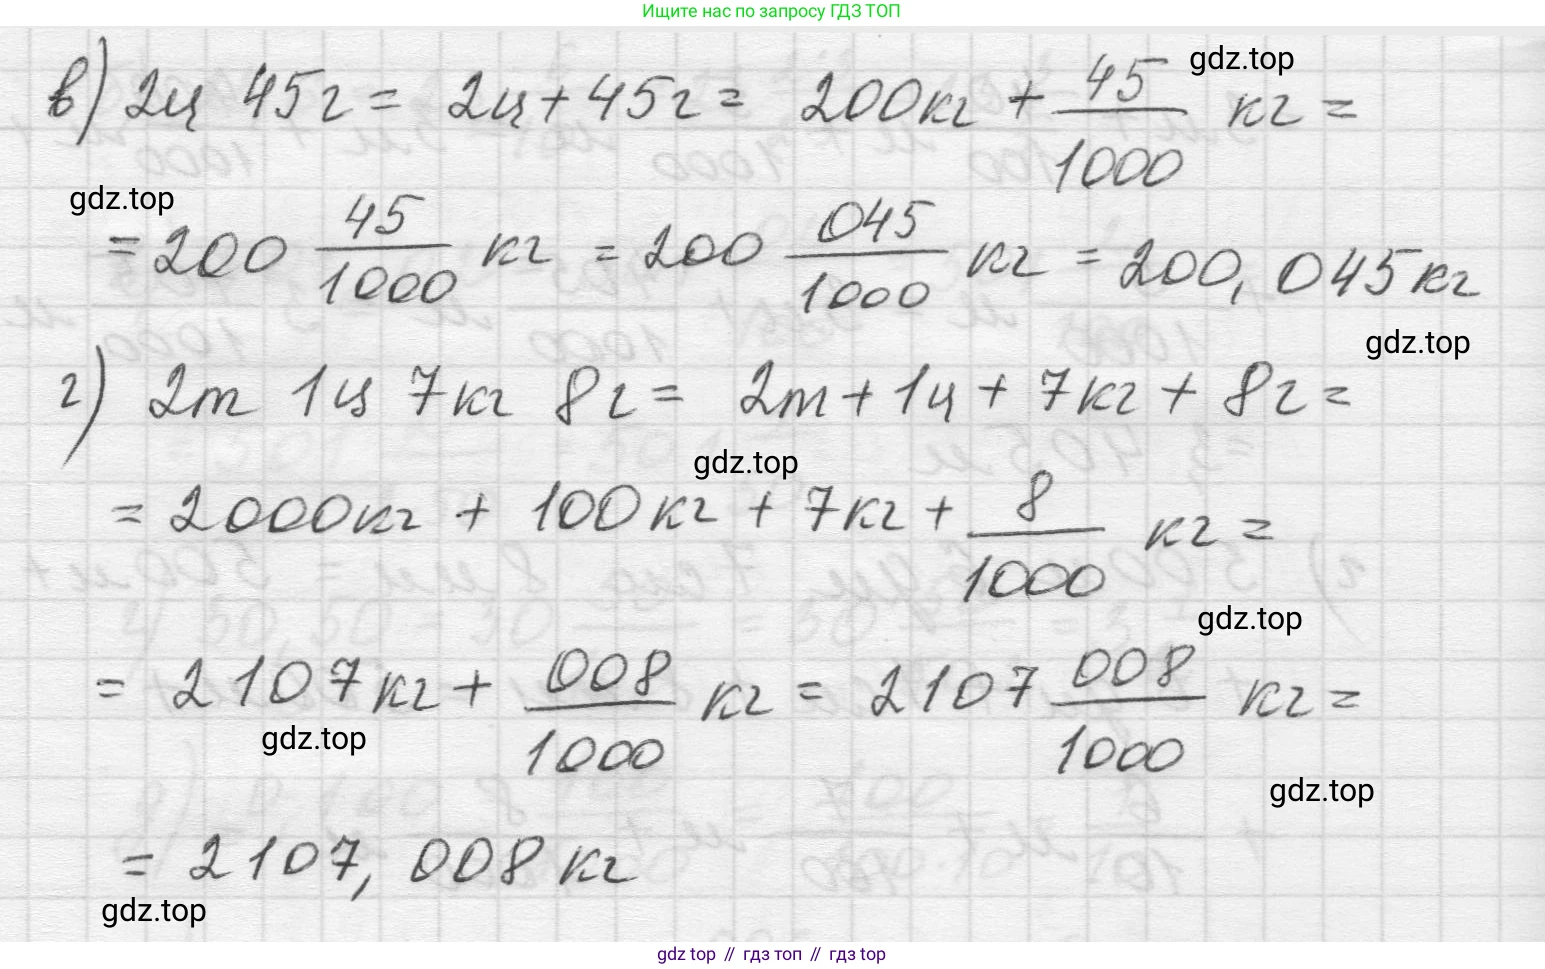 Ищите нас по запросу ГДЗ ТОП
gdz.top
в) 2ц 45г = 2ц + 45г = 200кг + 45/1000 кг =
gdz.top
= 200 45/1000 кг = 200 045/1000 кг = 200,045кг
gdz.top
г) 2т 1ц 7кг 8г = 2т + 1ц + 7кг + 8г =
gdz.top
= 2000кг + 100кг + 7кг + 8/1000 кг =
gdz.top
= 2107кг + 008/1000 кг = 2107 008/1000 кг =
gdz.top
gdz.top
= 2107,008кг
gdz.top
gdz top // гдз топ // гдз top